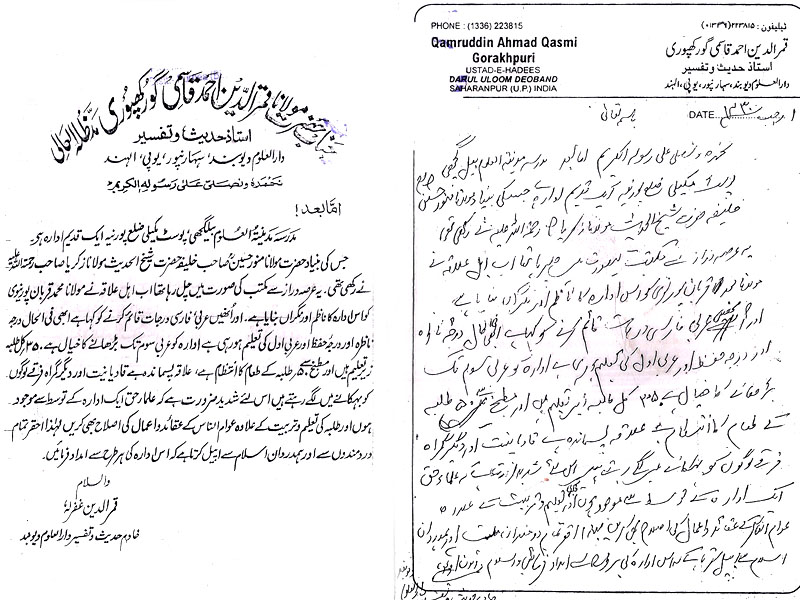 جناب حضرت مولانا قمر الدین احمد قاسمی گورکھپوری مدظلہ العالی
استاذ حدیث و تفسیر
دارالعلوم دیوبند، سہارنپور، یوپی، الہند
نحمدہ ونصلی علیٰ رسولہ الکریم
اما بعد!
مدرسہ مدینۃ العلوم بیلگچھی، پوسٹ مکیلی ضلع پورنیہ ایک قدیم ادارہ ہے
جس کی بنیاد حضرت مولانا منور حسین صاحب خلیفہ حضرت شیخ الحدیث مولانا زکریا صاحب رحمۃ اللہ علیہ
نے رکھی تھی۔ یہ عرصہ دراز سے مکتب کی صورت میں چل رہا تھا اب اہل علاقہ نے مولانا محمد قربان پورنوی
کو اس ادارہ کا ناظم اور نگراں بنایا ہے۔ اور انھیں عربی فارسی درجات قائم کرنے کو کہا ہے ابھی فی الحال درجہ
ناظرہ اور درجہ حفظ اور عربی اول کی تعلیم ہو رہی ہے ادارہ کو عربی سوم تک بڑھانے کا خیال ہے، ۳۵۰ کل طلبہ
زیر تعلیم ہیں اور مطبخ سے ۵۰ طلبہ کے طعام کا انتظام ہے، علاقہ پسماندہ ہے قادیانیت اور دیگر گمراہ فرقے لوگوں
کو بہکانے میں لگے رہتے ہیں اس لئے شدید ضرورت ہے کہ علماء حق ایک ادارہ کے توسط سے موجود
ہوں اور طلبہ کی تعلیم و تربیت کے علاوہ عوام الناس کے عقائد و اعمال کی اصلاح بھی کریں لہٰذا احقر تمام
دردمندوں سے اور ہمدردان اسلام سے اپیل کرتا ہے کہ اس ادارہ کی ہر طرح سے امداد فرمائیں۔
والسلام
قمر الدین غفرلہٗ
خادم حدیث و تفسیر دارالعلوم دیوبند
PHONE : (1336) 223815
Qamruddin Ahmad Qasmi
Gorakhpuri
USTAD-E-HADEES
DARUL ULOOM DEOBAND
SAHARANPUR (U.P.) INDIA
ٹیلیفون: ۲۲۳۸۱۵ (۰۱۳۳۶)
قمر الدین احمد قاسمی گورکھپوری
استاذ حدیث و تفسیر
دارالعلوم دیوبند، سہارنپور، یوپی، الہند
DATE ۱ رجب ۱۴۳۰
باسمہ تعالیٰ
نحمدہ ونصلی علی رسولہ الکریم اما بعد مدرسہ مدینۃ العلوم بیل گچھی
پوسٹ مکیلی ضلع پورنیہ ایک قدیم ادارہ ہے جسکی بنیاد مولانا منور حسین
خلیفہ حضرت شیخ الحدیث مولانا زکریا صاحب رحمۃ اللہ علیہ نے رکھی تھی
یہ عرصہ دراز سے مکتب کی صورت میں چل رہا تھا اب اہل علاقہ نے
مولانا محمد قربان پورنوی کو اس ادارہ کا ناظم اور نگراں بنایا ہے
اور انھیں عربی فارسی درجات قائم کرنے کو کہا ہے فی الحال درجہ ناظرہ
اور درجہ حفظ اور عربی اول کی تعلیم ہو رہی ہے ادارہ کو عربی سوم تک
بڑھانے کا خیال ہے ۳۵۰ کل طلبہ زیر تعلیم ہیں اور مطبخ سے ۵۰ طلبہ
کے طعام کا انتظام ہے علاقہ پسماندہ ہے قادیانیت اور دیگر گمراہ
فرقے لوگوں کو بہکانے میں لگے رہتے ہیں اس لئے شدید ضرورت ہے کہ علماء حق
ایک ادارہ کے توسط سے موجود ہوں اور تعلیم و تربیت کے علاوہ
عوام الناس کے عقائد و اعمال کی اصلاح بھی کریں لہذا احقر تمام دردمندان ملت اور ہمدردان
اسلام سے اپیل کرتا ہے کہ اس ادارہ کی ہر طرح سے امداد فرمائیں والسلام